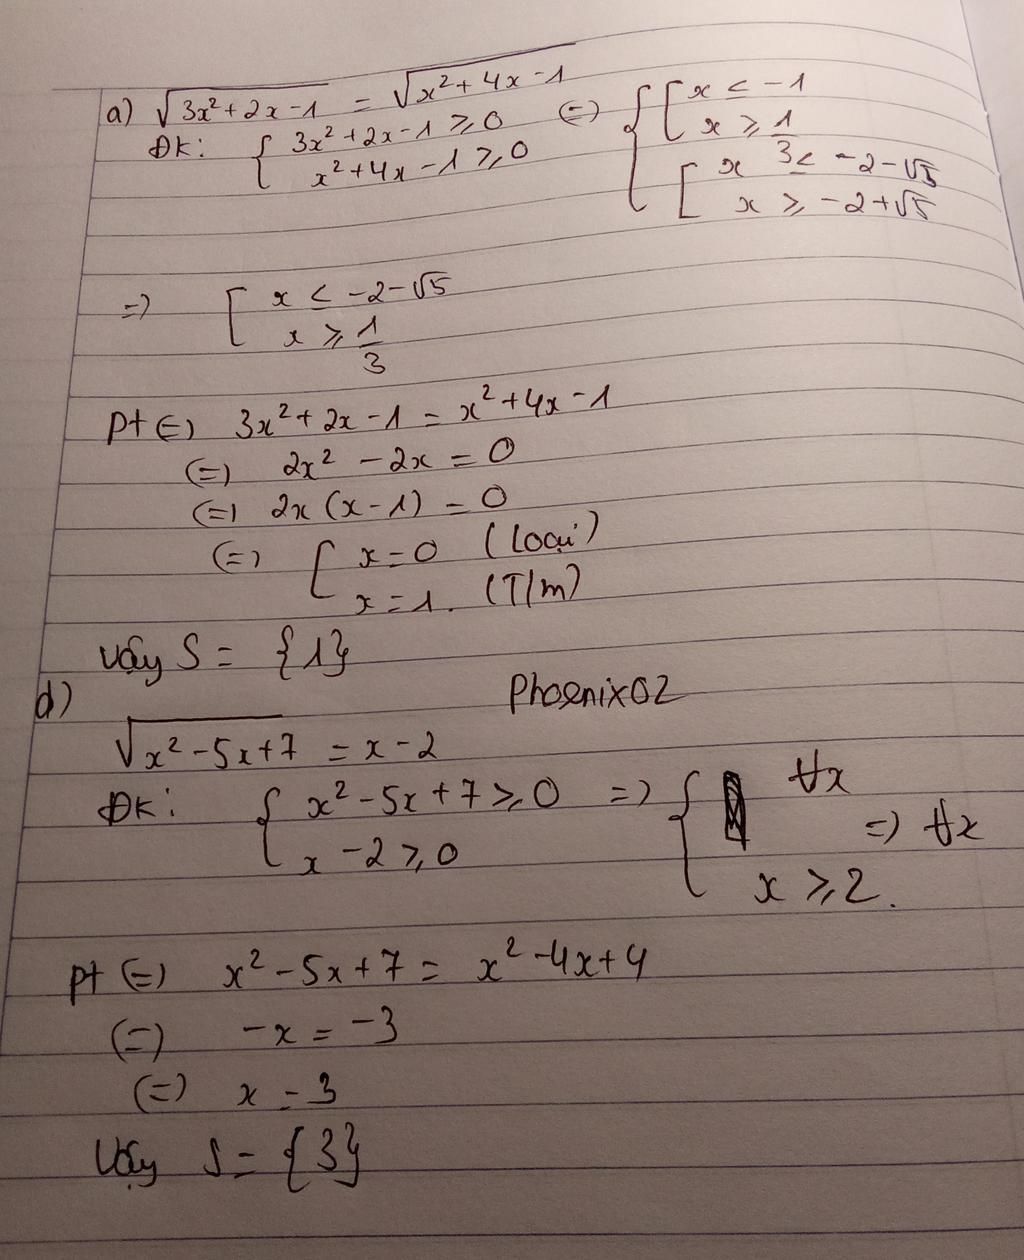 a) √(3x²+2x-1) = √(x²+4x-1)
ĐK: { 3x²+2x-1 ⩾ 0 (=) { [ x < -1
x²+4x-1 ⩾ 0 x ⩾ 1/3
[ x ≤ -2-√5
x ⩾ -2+√5
=) [ x < -2-√5
x ⩾ 1/3
Pt (=) 3x²+2x-1 = x²+4x-1
(=) 2x² -2x = 0
(=) 2x (x-1) = 0
(=) [ x=0 (loại)
x=1. (T/m)
Vậy S = {1}
d) Phoenix02
√(x²-5x+7) = x-2
ĐK: { x²-5x+7 ⩾ 0 =) { ∀x
x-2 ⩾ 0 x ⩾ 2. =) ∀x
pt (=) x²-5x+7 = x²-4x+4
(=) -x = -3
(=) x = 3
Vậy S = {3}